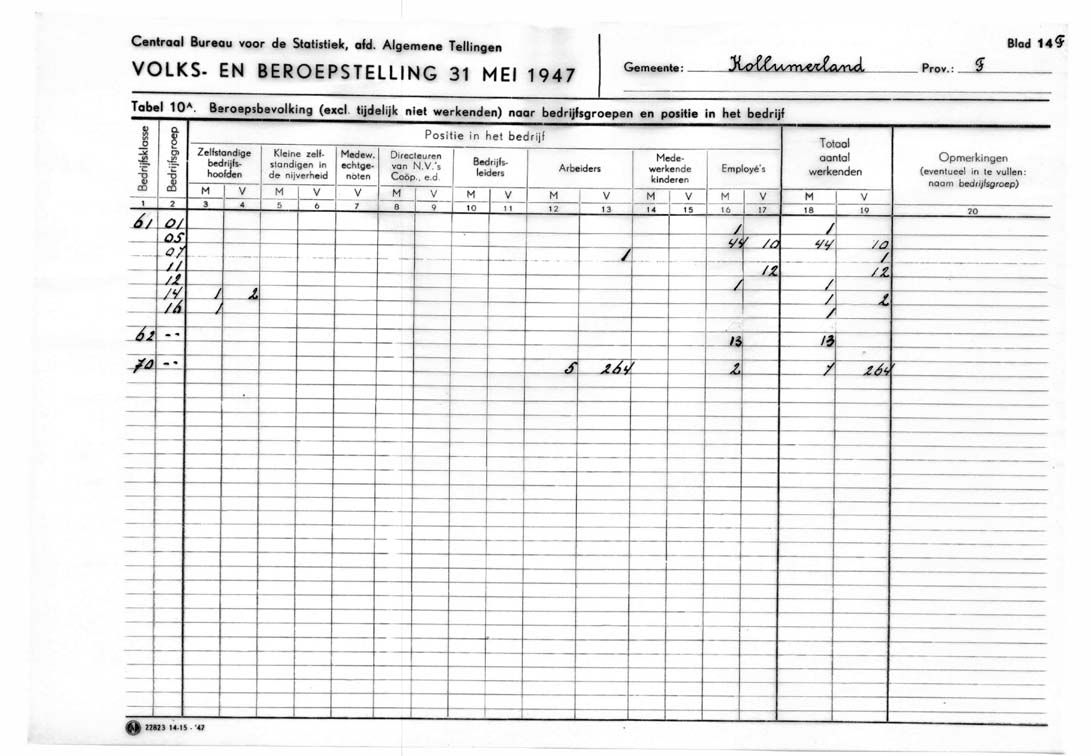 Centraal Bureau voor de Statistiek, afd. Algemene Tellingen
Blad 14 F
VOLKS- EN BEROEPSTELLING 31 MEI 1947
Gemeente: Kollumerland Prov.: F
Tabel 10A. Beroepsbevolking (excl. tijdelijk niet werkenden) naar bedrijfsgroepen en positie in het bedrijf
Bedrijfsklasse
Bedrijfsgroep
Positie in het bedrijf
Zelfstandige
bedrijfs-
hoofden
Kleine zelf-
standigen in
de nijverheid
Medew.
echtge-
noten
Directeuren
van N.V.'s
Coöp., e.d.
Bedrijfs-
leiders
Arbeiders
Mede-
werkende
kinderen
Employé's
Totaal
aantal
werkenden
Opmerkingen
(eventueel in te vullen:
naam bedrijfsgroep)
M V M V V M V M V M V M V M V M V
1 2 3 4 5 6 7 8 9 10 11 12 13 14 15 16 17 18 19 20
61 01 1 1
05 44 10 44 10
07 1 1
11 12 12
12 1 1
14 1 2 1 2
16 1 1
62 -- 13 13
70 -- 5 264 2 7 264
22823 14-15 - '47